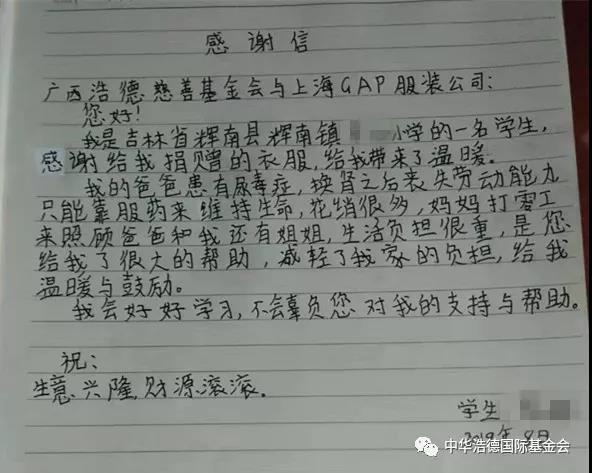 感谢信
广西浩德慈善基金会与上海GAP服装公司:
您好!
我是吉林省辉南县辉南镇小学的一名学生,
感谢给我捐赠的衣服,给我带来了温暖。
我的爸爸患有尿毒症,换肾之后丧失劳动能力
只能靠服药来维持生命,花销很多,妈妈打零工
来照顾爸爸和我还有姐姐,生活负担很重,是您
给我了很大的帮助,减轻了我家的负担,给我
温暖与鼓励。
我会好好学习,不会辜负您对我的支持与帮助。
祝:
生意兴隆,财源滚滚。
学生
2019年8月
中华浩德国际基金会